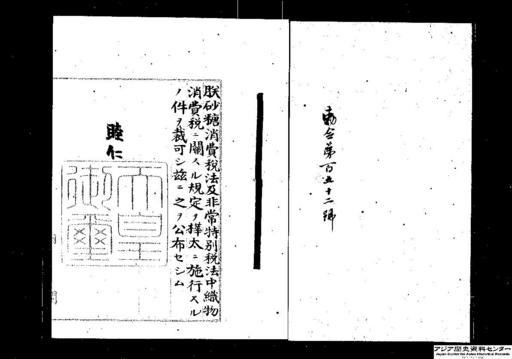 勅令第百五十二號
朕砂糖消費税法及非常特別税法中織物
消費税ニ關スル規定ヲ樺太ニ施行スル
ノ件ヲ裁可シ茲ニ之ヲ公布セシム
睦仁
天皇
御璽
アジア歴史資料センター
Japan Center for Asian Historical Records